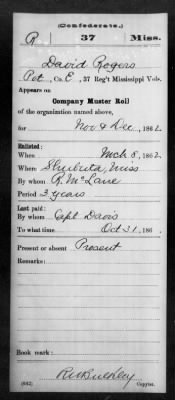 (Confederate.)
R 37 Miss.
David Rogers
Pvt, Co. E, 37 Reg't Mississippi Vols.
Appears on
Company Muster Roll
of the organization named above,
for Nov & Dec, 1862
Enlisted:
When Mch 8, 1862
Where Shubuta, Miss
By whom R. McLane
Period 3 years
Last paid:
By whom Capt Davis
To what time Oct 31, 186
Present or absent Present
Remarks:
Book mark:
(642) Copyist.